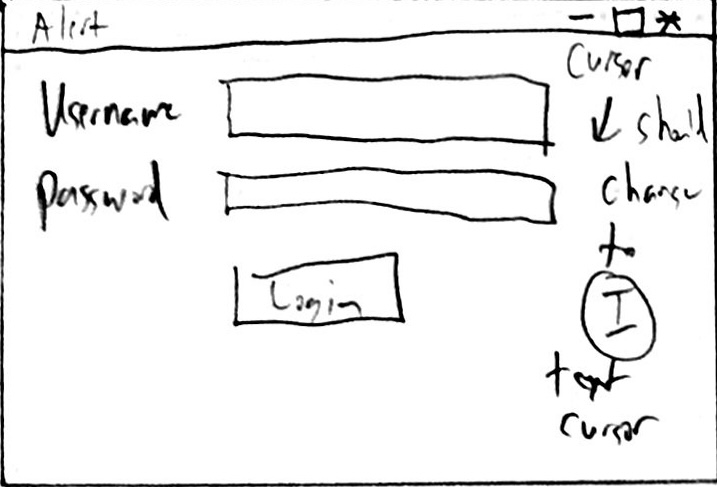 Alert
Username
Password
Login
Cursor
should
change
to
I
text
cursor